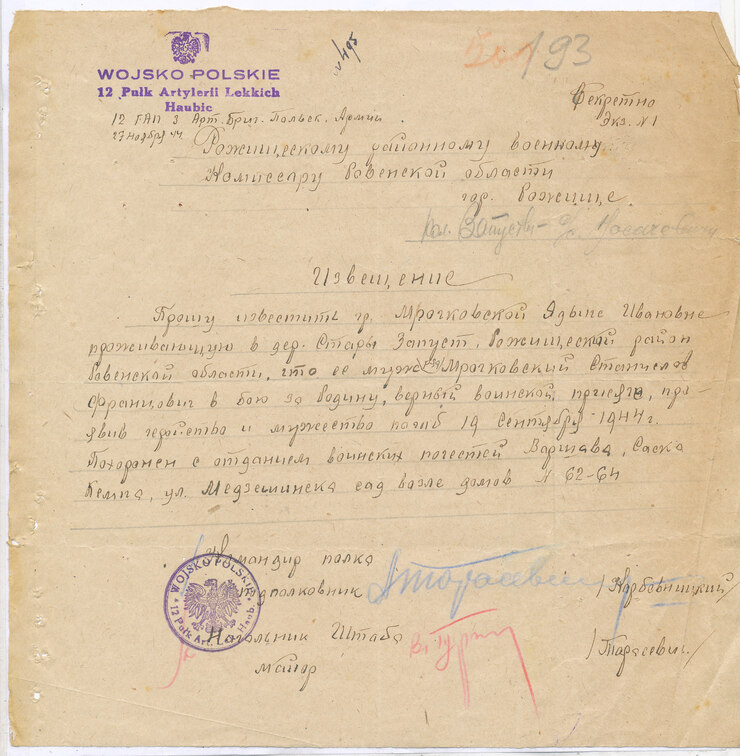 50/193
WOJSKO POLSKIE
12 Pułk Artylerii Lekkich
Haubic
Секретно
Экз. N 1
12 ГАП 3 Арт. Бриг. Польск. Армии
27 ноября 44
Рожищескому районному военному
Комиссару Ровенской области
гор. Рожище.
Извещение
Прошу известить гр. Мрочковской Ядвиге Ивановне
проживающую в дер. Стары Запуст, Рожищеской район
Ровенской области, что ее муж Мрочковский Станислов
Францович в бою за Родину, верный воинской присяге, про-
явив геройство и мужество погиб 19 Сентября 1944 г.
Похоронен с отданием воинских почестей Варшава, Саска
Кемпа, ул. Медземинска сад возле домов N 62-64
Командир полка
подполковник /Нарбовницкий/
Начальник Штаба
майор /Тарасевич/
WOJSKO POLSKIE
12 Pułk Art. Haub.